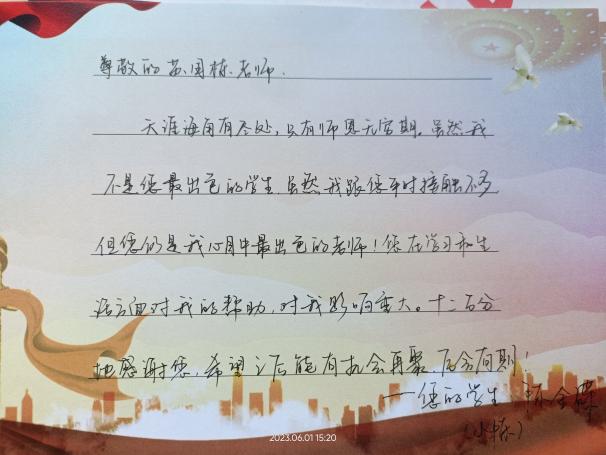 尊敬的苏国栋老师.
天涯海角有尽处,只有师恩无穷期。虽然我
不是您最出色的学生,虽然我跟您平时接触不多
但您仍是我心目中最出色的老师!您在学习和生
活方面对我的帮助,对我影响重大。十二百分
地感谢您,希望之后能有机会再聚,后会有期!
——您的学生
2023.06.01 15:20